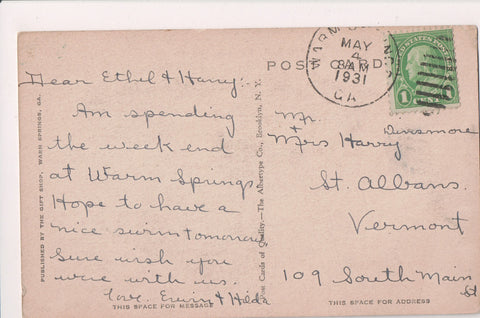 POST CARD
WARM SPRINGS
MAY
4
8 AM
1931
GA
1
1
Dear Ethel & Harry:-
Am spending
the week end
at Warm Springs
Hope to have a
nice swim tomorrow
Sure wish you
were with us.
Love. Erwin & Hilda
THIS SPACE FOR MESSAGE
PUBLISHED BY THE GIFT SHOP, WARM SPRINGS, GA.
Post Cards of Quality.—The Albertype Co., Brooklyn, N. Y.
Mr.
+
Mrs Harry Dinsmore
St. Albans.
Vermont
109 South Main
St
THIS SPACE FOR ADDRESS